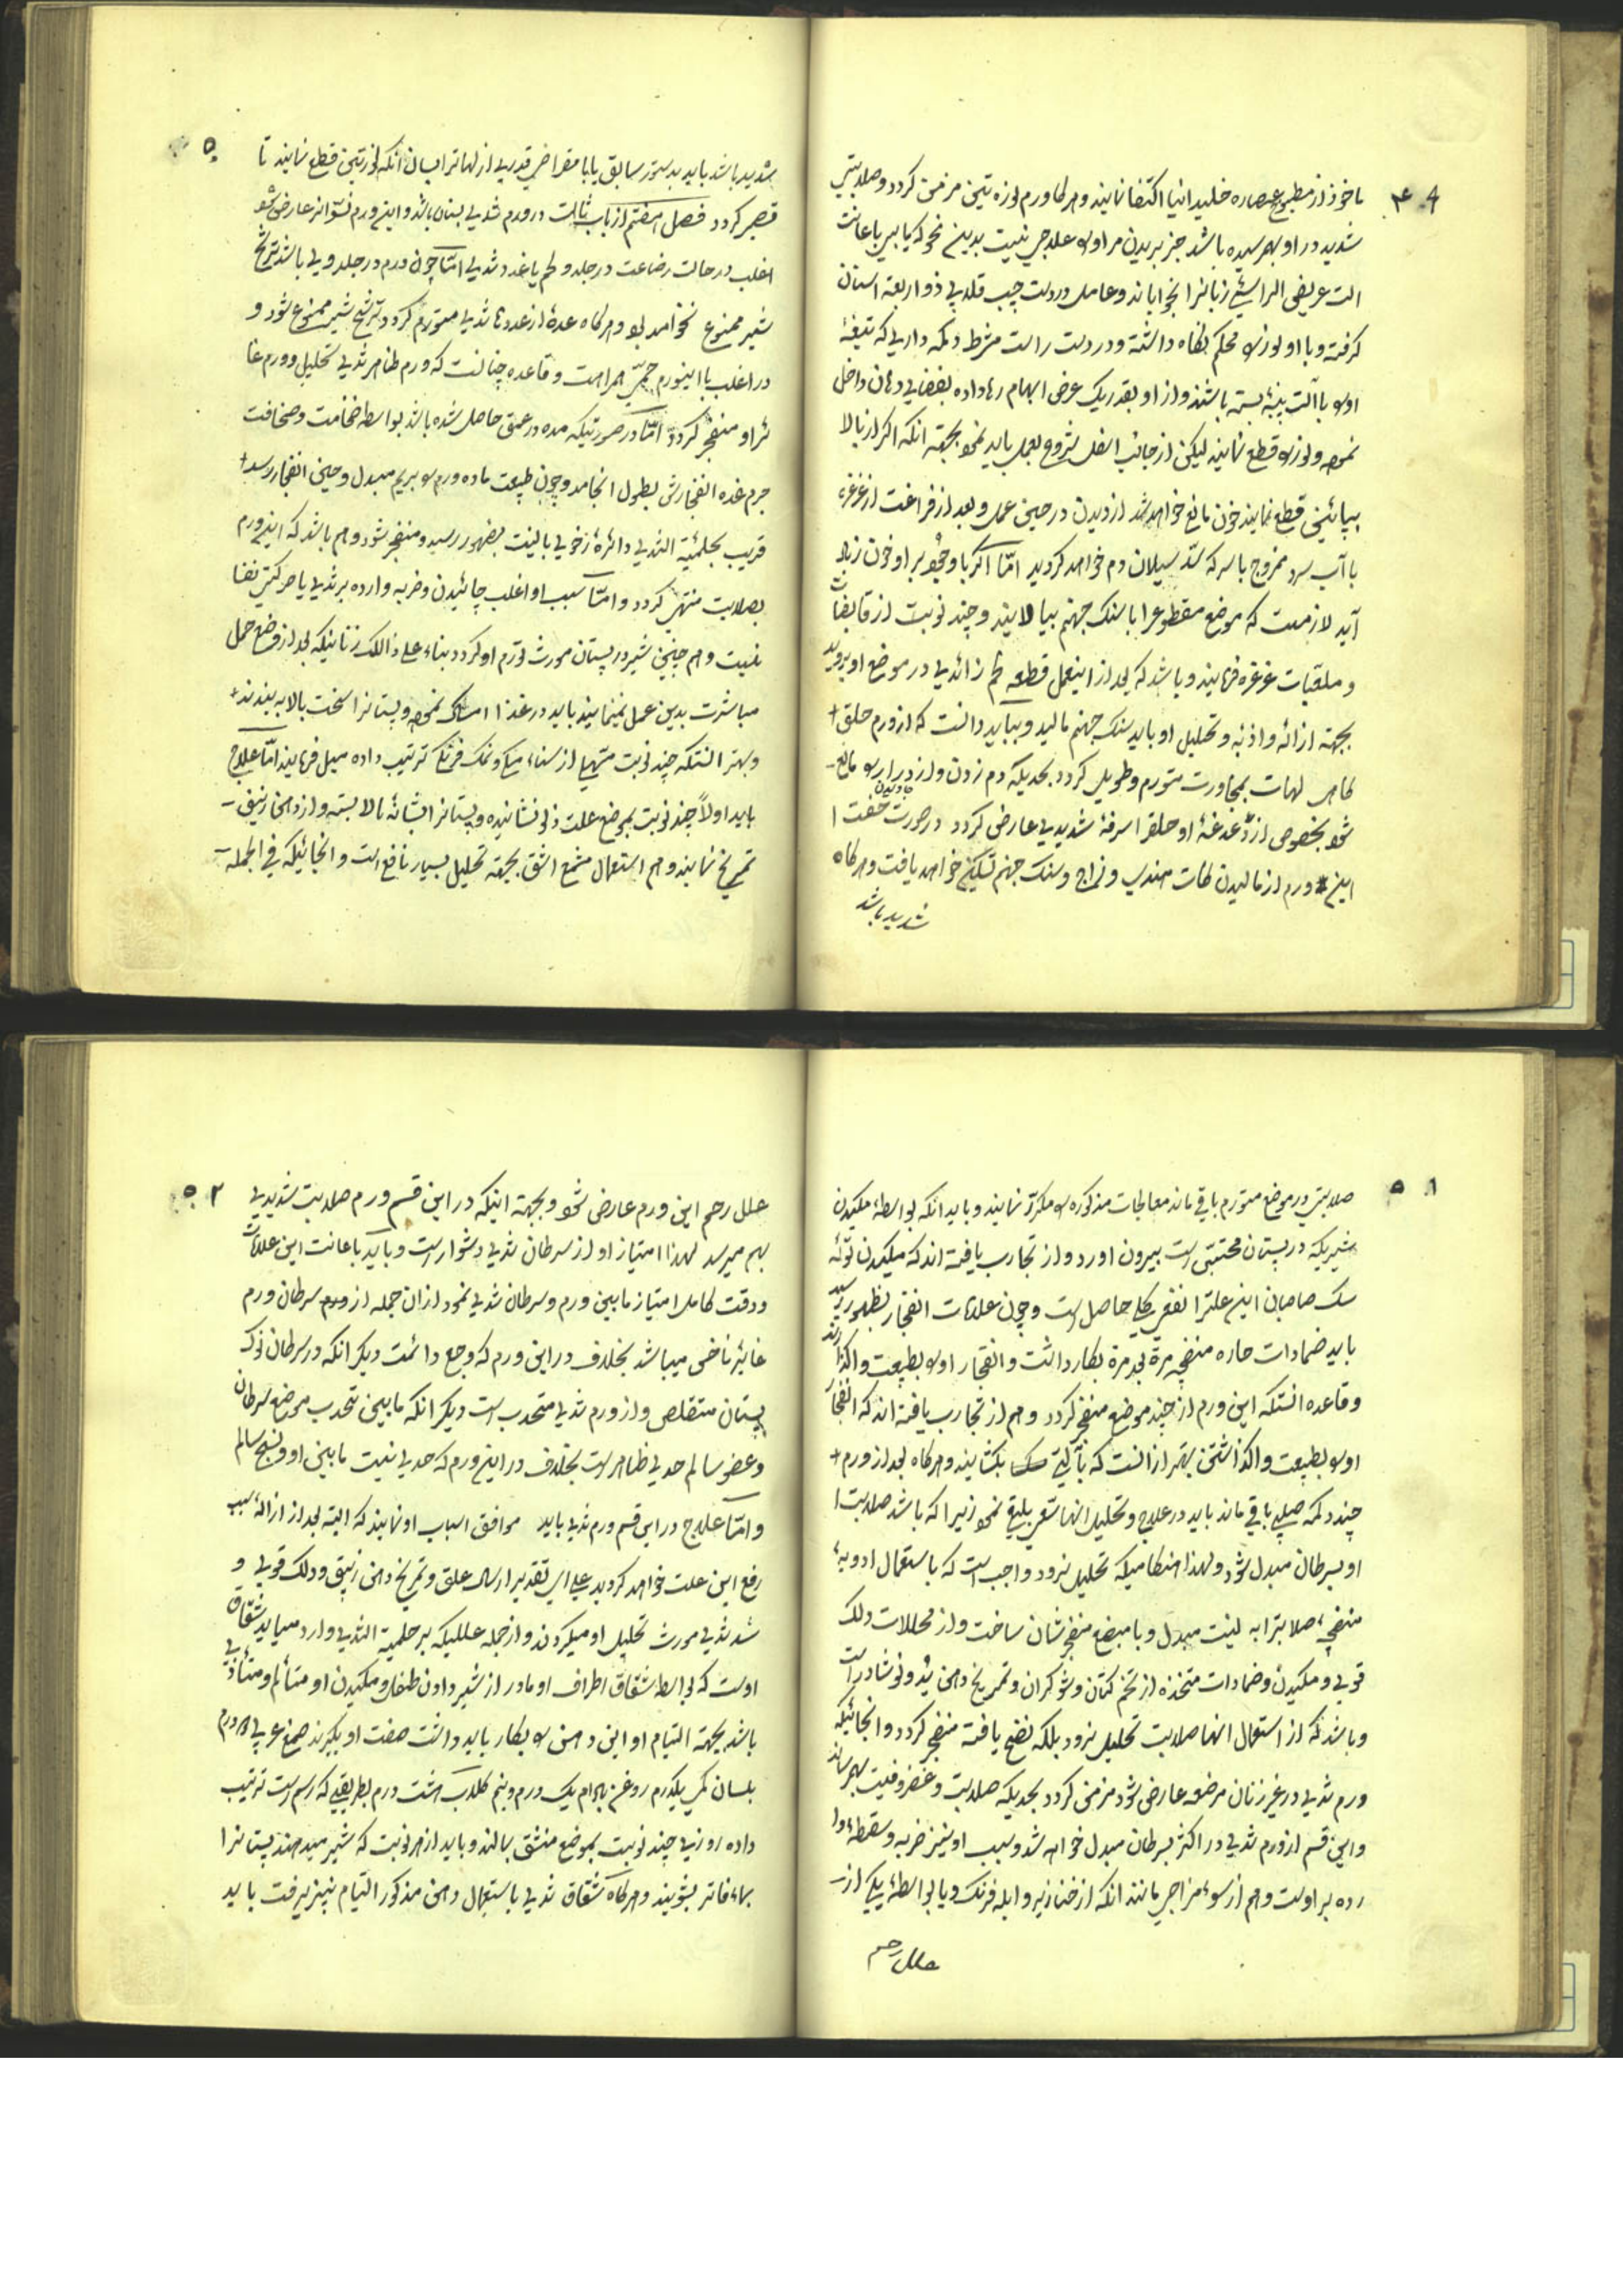 ۴۹
ماخوذ از مطبوع عصاره خلید انیا اکتفا نمایند و هرکاه ورم لوزه تین مزمن کردد و صلابتی
شدید در او بهم رسیده باشد جز بریدن مر او را علاجی نیست بدین نحو که یا بیر باعانت
الت عریض الراسی زبانرا بخواباند و عامل در دست چپ قلابی ذو اربعة اسنان
کرفته و با او لوزه را محکم نکاه داشته و در دست راست مشرط دکمه داریرا که تیغهٔ
او را با آلت پنبهٔ بسته باشند و از او بقدر یک عرض ابهام رها داده بفضای دهان داخل
نموده و لوزه را قطع نمایند لیکن از جانب اسفل شروع بعمل باید نمود بجهة انکه اکر از بالا
بپائین قطع نمایند خون مانع خواهد شد از دیدن در حین عمل و بعد از فراغت از غرغره
با آب سرد ممزوج با سرکه سد سیلان دم خواهد کردید امّا اکر با وجود بر او خون زیاد
آید لازمست که موضع مقطوع را با سنک جهنم بیالایند و چند نوبت از قابضات
و ملقبات غرغره فرمایند و باشد که بعد از اینعمل قطعه لحم زائدی در موضع او بروید
بجهة ازاله و اذابه و تحلیل او باید سنک جهنم مالید و بباید دانست که از ورم حلق
کاهی لهات بمجاورت متورم و طویل کردد بحدیکه دم زدن و ازدراد را مانع
شود بخصوص از دغدغهٔ او حلق را سرفهٔ شدیدی عارض کردد در صورت خفت
این ورم از مالیدن کات هندی و زاج و سنک جهنم تسکین خواهد یافت و هرکاه
شدید باشد
۵۰
شدید باشد باید بدستور سابق یا با مقراض قدری از لهات را بسان انکه لوزتین قطع نمایند تا
قصیر کردد فصل هفتم از باب ثالث در ورم ثدی بستان باشد و این ورم نسوانرا عارض شود
اغلب در حالت رضاعت در جلد و لحم یا غدد ثدی امّا چون ورم در جلد وی باشد ترشح
شیر ممنوع نخواهد بود و هرکاه عدهٔ از غددهای ثدی متورم کردد ترشح شیر ممنوع شود و
در اغلب با اینورم حمی همراهست و قاعده چنانست که ورم ظاهر ثدی تحلیل و ورم غا
ئر او منفجر کردد امّا در صورتیکه مده در عمق حاصل شده باشد بواسطه ضخامت و صخافت
جرم غده انفجارش بطول انجامد و چون طبیعت ماده ورم را بریم مبدل و حین انفجار رسد
قریب بحلمیة الثدی دائرهٔ زخوی بالینت بضهور رسد و منفجر شود و هم باشد که این ورم
بصلابت منتهی کردد و امّا سبب او اغلب چائیدن و ضربه وارده بر ثدی یا حرکتین نفسا
نیست و هم چنین شیر در پستان مورث تورم او کردد بناء علی ذالک زنانیکه بعد از وضع حمل
مباشرت بدین عمل نمینمایند باید در غذا امساک نموده و پستانرا سخت بالا ببندند
و بهتر انستکه چند نوبت مسهلی از سناء مکی و نمک فرنکی ترتیب داده میل فرمایند امّا علاج
باید اولاً چند نوبت بموضع علت زلو نشانیده و پستانرا بشانه بالا بسته و از دهن زنبق
تمریخ نمایند و هم استعمال مشمع اشق بجهة تحلیل بسیار نافع است و انجائیکه فی الجمله
۵۱
صلابتی در موضع متورم باقی ماند معالجات مذکوره را مکرر نمایند و باید انکه بواسطهٔ مکیدن
شیریکه در پستان محتبس است بیرون اورد و از تجارب یافته اند که مکیدن تولهٔ
سک صاحبان این علت را نفعی کلی حاصل است و چون علامات انفجار بظهور رسید
باید ضمادات حاره منفجه مرة بعد مرة بکار داشت و انفجار او را بطبیعت واکذارند
و قاعده انستکه این ورم از چند موضع منفجر کردد و هم از تجارب یافته اند که انفجار
او را بطبیعت واکذاشتن بهتر از انست که بآلتی بکشایند و هرکاه بعد از ورم
چند دکمه صلبی باقی ماند باید در علاج و تحلیل انها سعی بلیغ نمود زیرا که باشد صلابت
او بسرطان مبدل شود و لهذا هنکامیکه تحلیل نرود واجب است که باستعمال ادویهٔ
منضجه صلابترا به لینت مبدل و با مبضع منفجرشان ساخت و از محللات دلک
قوی و مکیدن و ضمادات متخذه از تخم کتان و شوکران و تمریخ دهن ید و نوشادر است
و باشد که از استعمال انها صلابت تحلیل نرود بلکه نضج یافته منفجر کردد و انجائیکه
ورم ثدی در غیر زنان مرضعه عارض شود مزمن کردد بحدیکه صلابت و غضروفیت بهم رساند
و این قسم از ورم ثدی در اکثر بسرطان مبدل خواهد شد و سبب او نیز ضربه و سقطهٔ وا
رده بر اوست و هم از سوء مزاجی مانند انکه از خنازیر و ابله فرنک و یا بواسطهٔ یکی از
علل رحم
۵۲
علل رحم این ورم عارض شود و بجهة اینکه در این قسم ورم صلابت شدیدی
بهم میرسد لهذا امتیاز او از سرطان ثدی دشوار است و باید باعانت این علامات
و دقت کامل امتیاز مابین ورم و سرطان ثدی نمود از ان جمله از ورم سرطان ورم
غایر ناخس میباشد بخلاف در این ورم که وجع دائمست دیکر انکه در سرطان نوک
پستان متقلص و از ورم ثدی متحدب است دیکر انکه مابین تحدب موضع سرطان
و عضو سالم حدی ظاهر است بخلاف در این ورم که حدی نیست مابین او و نسج سالم
و امّا علاج در این قسم ورم ثدی باید موافق اسباب او نمایند که البته بعد از ازالهٔ سبب
رفع این علت خواهد کردید علی ای تقدیر ارسال علق و تمریخ دهن زنبق و دلک قوی و
شد ثدی مورث تحلیل او میکردند و از جمله عللیکه بر حلمیة الثدی وارد میاید شقاق
اوست که بواسطه شقاق اطراف او مادر از شیر دادن طفل و مکیدن او متألم و متأذی
باشد بجهة التیام او این دهن را بکار باید داشت صفت او بکیرند صمغ عربی دو درم
بلسان مکی یکدرم روغن بادام یک درم و نیم کلاب هشت درم بطریقی که رسم است ترتیب
داده روزی چند نوبت بموضع منشق بمالند و باید از هر نوبت که شیر میدهند پستانرا
بماء فاتر بشویند و هرکاه شقاق ثدی باستعمال دهن مذکور التیام نپذیرفت باید